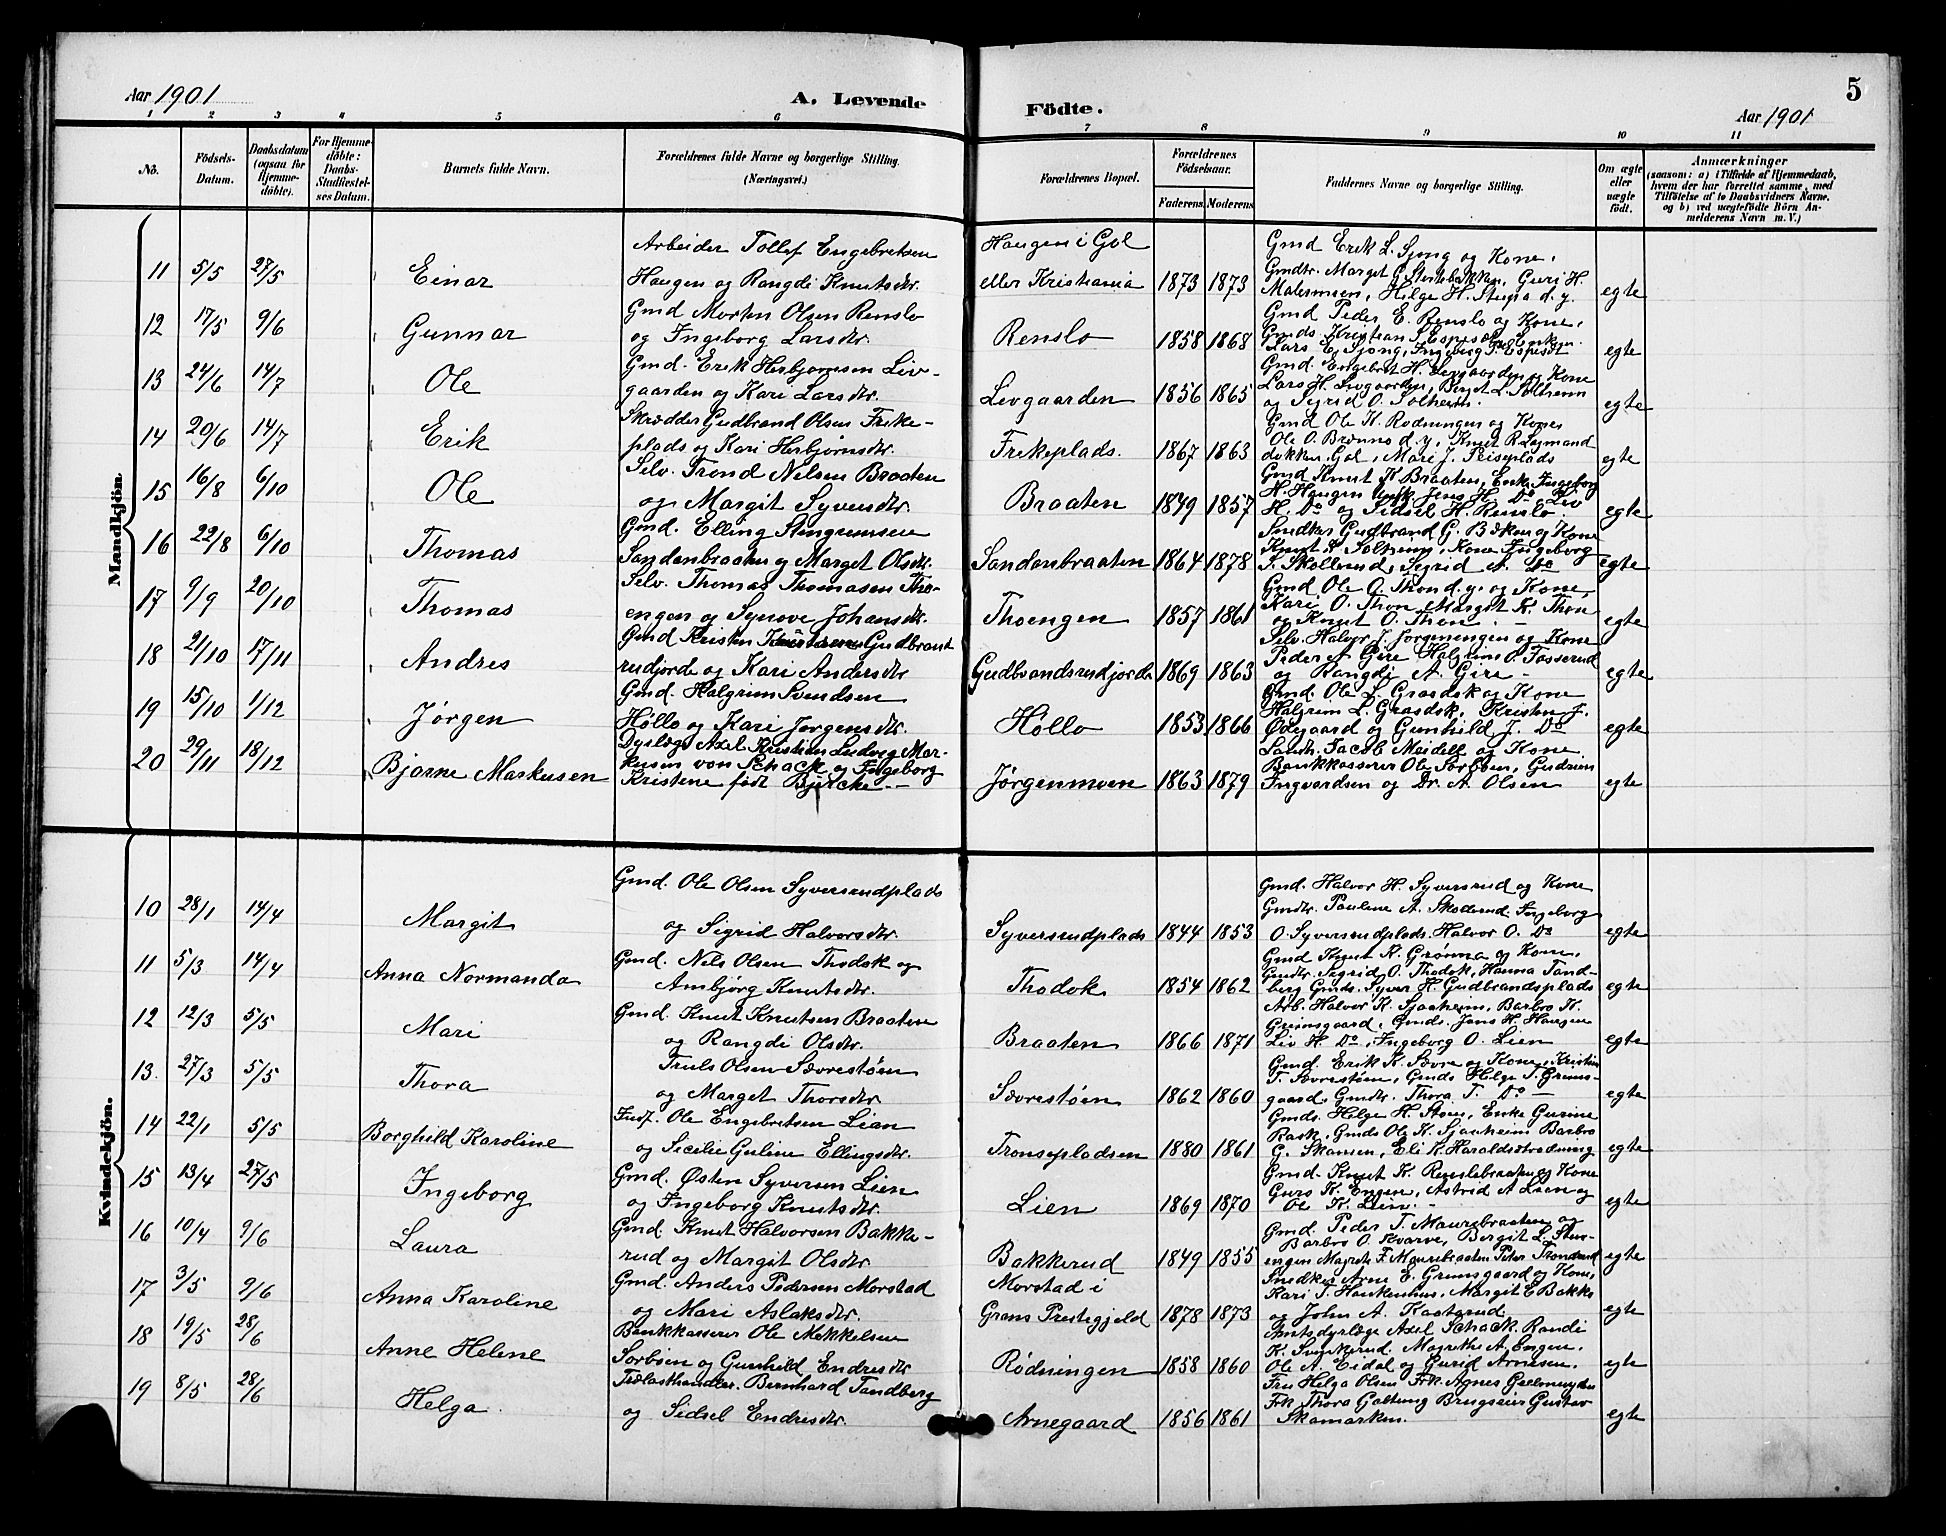 5
Aar 1901
A. Levende Födte.
Aar 1901
1 2 3 4 5 6 7 8 9 10 11
No.
Födsels-Datum.
Daabsdatum (ogsaa for Hjemmedöbte).
For Hjemmedöbte: Daabs-Stadfæstelses Datum.
Barnets fulde Navn.
Forældrenes fulde Navne og borgerlige Stilling. (Næringsvei.)
Forældrenes Bopæl.
Forældrenes Födselsaar.
Faderens Moderens
Faddernes Navne og borgerlige Stilling.
Om ægte eller uægte födt.
Anmærkninger
(saasom: a) i Tilfælde af Hjemmedaab, hvem der har forrettet samme, med Tilföielse af to Daabsvidners Navne. og b) ved uægtefödte Börn Anmelderens Navn m. V.)
Mandkjön.
11 5/5 27/5 Einar
Arbeider Tollef Engebretsen
Haugen og Rangdi Knutsdtr.
Haugen i Gol
eller Kristiania 1873 1873
Gmd Erik L. Sjong og Kone,
Gmdtr. Margit G. Guri H.
Helge H. Stupa d. y. egte
12 17/5 9/6 Gunnar
Gmd Morten Olsen Renslo
og Ingeborg Larsdtr.
Renslo 1858 1868
Gmd Peder E. Renslo og Kone,
Gmds. Kristian
Lars E. Sjong, egte
13 24/6 14/7 Ole
Gmd. Erik Herbjørnsen Liv-
gaarden og Kari Larsdtr.
Levgaarden 1856 1865
Gmd. Engebret H. Levgaarden og Kone
Lars H. Levgaarden, Birget L. Solheim
og Sigrid O. Solheim. egte
14 20/6 14/7 Erik
Skrædder Gudbrand Olsen Freke-
plads og Kari Herbjørnsdtr.
Frekeplads. 1867 1863
Gmd Ole K. Rodningen og Kones
Ole O. Brenno d. y., Knut R.
Gol, Mari J. egte
15 16/8 6/10 Ole
Selv. Trond Nilsen Braaten
og Margit Syversdtr.
Braaten 1849 1857
Gmd Knut K Braaten, Enke Ingeborg
N. Haugen Jens H. Do, Liv
H. Do og Sidsel H. Renslo. egte
16 22/8 6/10 Thomas
Gmd. Elling Stengrimsen
Sandenbraaten og Marget Olsdtr.
Sandenbraaten 1864 1878
Snedker Gudbrand G. Bæken og Kone
Knut S. Solheim, Kone Ingeborg
S. Skollerud, Sigrid A. Do egte
17 9/9 20/10 Thomas
Selv. Thomas Thomasen Tho-
engen og Synove Johansdtr.
Thoengen 1857 1861
Gmd Ole O. Thon d. y. og Kone,
Kari O. Thon Margit K. Thon
og Knut O. Thon. - egte
18 21/10 17/11 Andres
Gmd Kristen Gudbrands
rudjorde og Kari Andersdtr
Gudbrandsrudjorde 1869 1863
Selv. Halvor J. Jorgenengen og Kone
Peder A Gire Halgrim O. Tasserud
og Rangdi A. Gire - egte
19 15/10 1/12 Jørgen
Gmd. Halgrim Svendsen
Høllo og Kari Jorgensdtr.
Høllo 1853 1866
Gmd. Ole L. Grasdok og Kone
Halgrim L. Grasdok, Kristen J.
Ødegaard og Gunhild J. Do egte
20 29/11 18/12 Bjarne Markusen
Dyrlæge Axel Kristian Ludvig Mar-
kusen von Schack og Ingeborg
Kristene født Bjercke. -
Jørgenmoen 1863 1879
Landh. Jacob Meidell og Kone
Bankkasserer Ole Sorbøen, Gudrun
Ingvardsen og Dr. A. Olsen egte
Kvindekjön.
10 28/1 14/4 Margit
Gmd. Ole Olsen Syversrudplads
og Sigrid Halvorsdtr.
Syversrudplads 1844 1853
Gmd. Halvor H. Syversrud og Kone
Gmdtr. Pauline A. Skollerud. Ingeborg
O. Syversrudplads. Halvor O. Do egte
11 5/3 14/4 Anna Normanda
Gmd. Nels Olsen Thodok og
Ambjørg Knutsdtr.
Thodok 1854 1862
Gmd Knut K. Grønna og Kone,
Gmdtr. Sigrid O. Thodok, Hanna Tand-
berg Gmds. Syver H. Gudbrandsplads egte
12 12/3 5/5 Mari
Gmd. Knut Knutsen Braaten
og Rangdi Olsdtr.
Braaten 1866 1871
Arb. Halvor K. Sjaaheim, Barbro K.
Grimsgaard. Gmds. Jens H. Haugen
Liv H. Do, Ingeborg O. Lien egte
13. 27/3 5/5 Thora
Truls Olsen Sævrestøen
og Marget Thorsdtr.
Sævrestøen 1862 1860
Gmd. Erik K. Sævre og Kone, Kristine
T. Sævrestøen, Gmds Helge T. Grims-
gaard, Gmdtr. Thora T. Do - egte
14 22/1 5/5 Borghild Karoline
Indf. Ole Engebretsen Lian
og Sicelie Guline Ellingsdtr.
Tronsepladsen 1880 1861
Gmds. Helge H. Stoen, Enke Gurine
Rask, Gmds Ole K. Sjaaheim Barbro
G. Skansen, Eli K. Haraldsstrædning egte
15 13/4 27/5 Ingeborg
Gmd. Østen Syversen Lien
og Ingeborg Knutsdtr.
Lien 1869 1870
Gmd. Knut K. Renslebraaten og Kone
Guro K. Engen, Astrid A Lien og
Ole K. Lien. - egte
16 10/4 9/6 Laura
Gmd. Knut Halvorsen Bakke-
rud og Margit Olsdtr.
Bakkerud 1849 1855
Gmd. Peder T. Maurebraaten og
Barbro O. Kvarve, Bergit L. Stor-
engen Magrete F. Maurebraaten Peter Trondrud egte
17 3/5 9/6 Anna Karoline
Gmd. Anders Pedersen Morstad
og Mari Aslaksdtr.
Morstad i
Grans Prestegjeld 1878 1873
Snedker Arne E. Grimsgaard og Kone,
Kari T. Haukenhus, Margit E Bakke
og John A. Kaatsrud egte
18 19/5 28/6 Anne Helene
Bankkasserer Ole Mekkelsen
Sorbøen og Gunhild Endresdtr
Rødningen 1858 1860
Amtsdyrlæge Axel Schack. Randi
K. Svenkerud. Magrethe A. Engen.
Ole A. Eidal og Gurid Arnesen. egte
19 8/5 28/6 Helga.
Trælasthandler. Bernhard Tandberg
og Sidsel Endresdtr.
Arnegaard 1856 1861
Fru Helga Olsen Frk. Agnes Gjelmuyden
Frk Thora Galtung Brugseier Gustav
Skamarken. egte